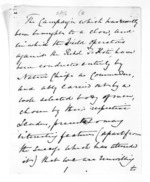 The Campaign which has recently
been brought to a close, and
in which the Field Operations
against the Rebel Te Kooti have
been conducted entirely by
Native Chiefs as Commanders,
and ably carried out by a
select body, of men
chosen by their respective
leaders, presents many
interesting features (apart from
the Success, which has attended
it) that we are